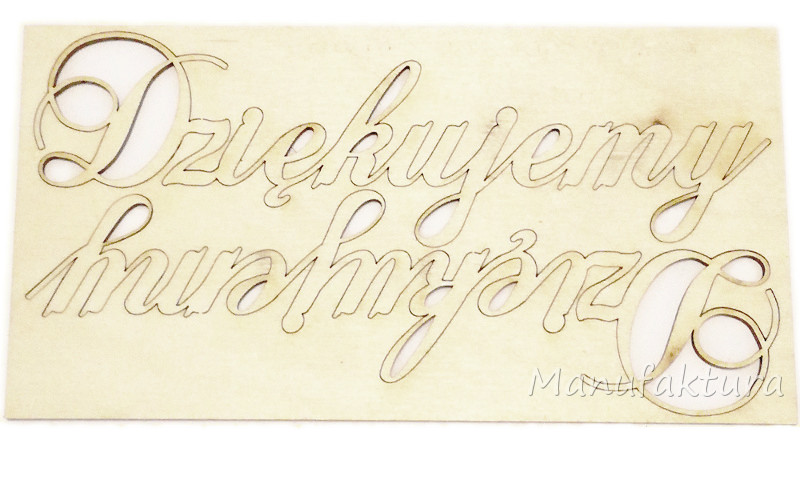 Dziękujemy
Dziękujemy
Manufaktura